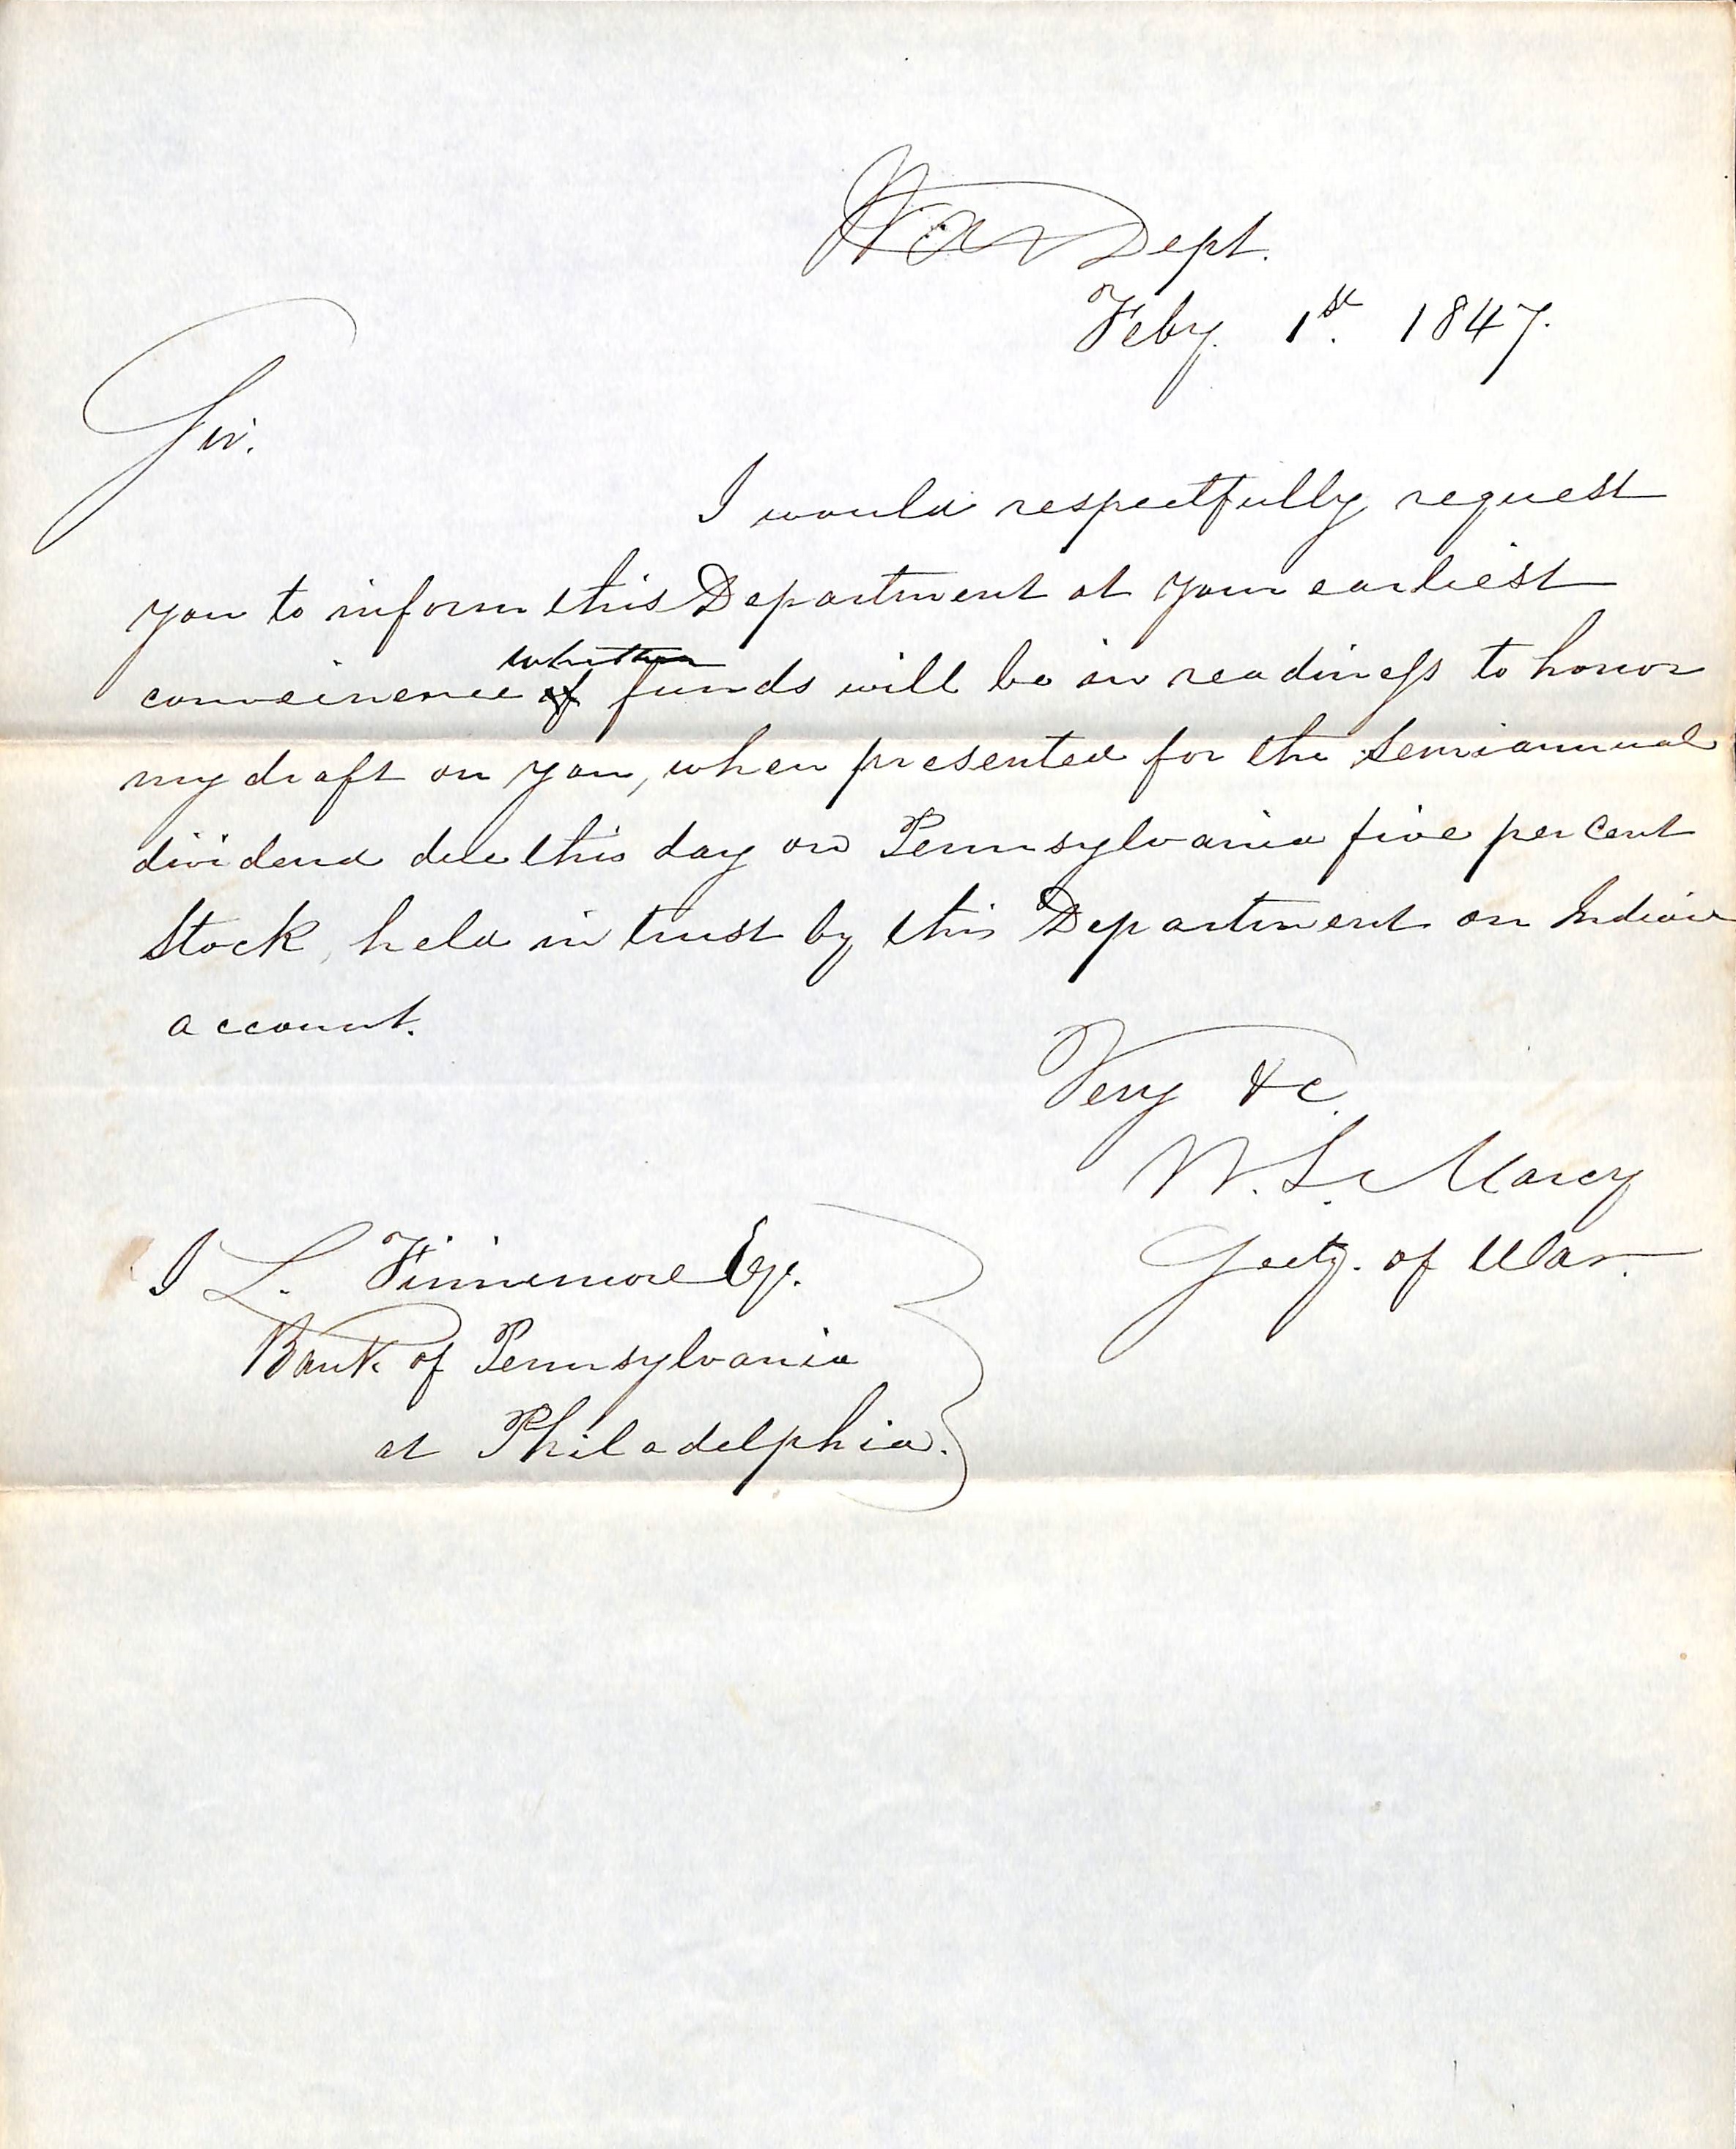 War Dept.
Feby. 1st. 1847.
Sir.
I would respectfully request
you to inform this Department at your earliest
whether
conveinence if funds will be in readiness to honor
my draft on you, when presented for the Semiannual
dividend due this day on Pennsylvania five per Cent
Stock, held in trust by this Department on Indian
account.
Very &c.
W. L. Marcy
Secty. of War.
J L. Finnimore Esqr.
Bank of Pennsylvania
at Philadelphia.